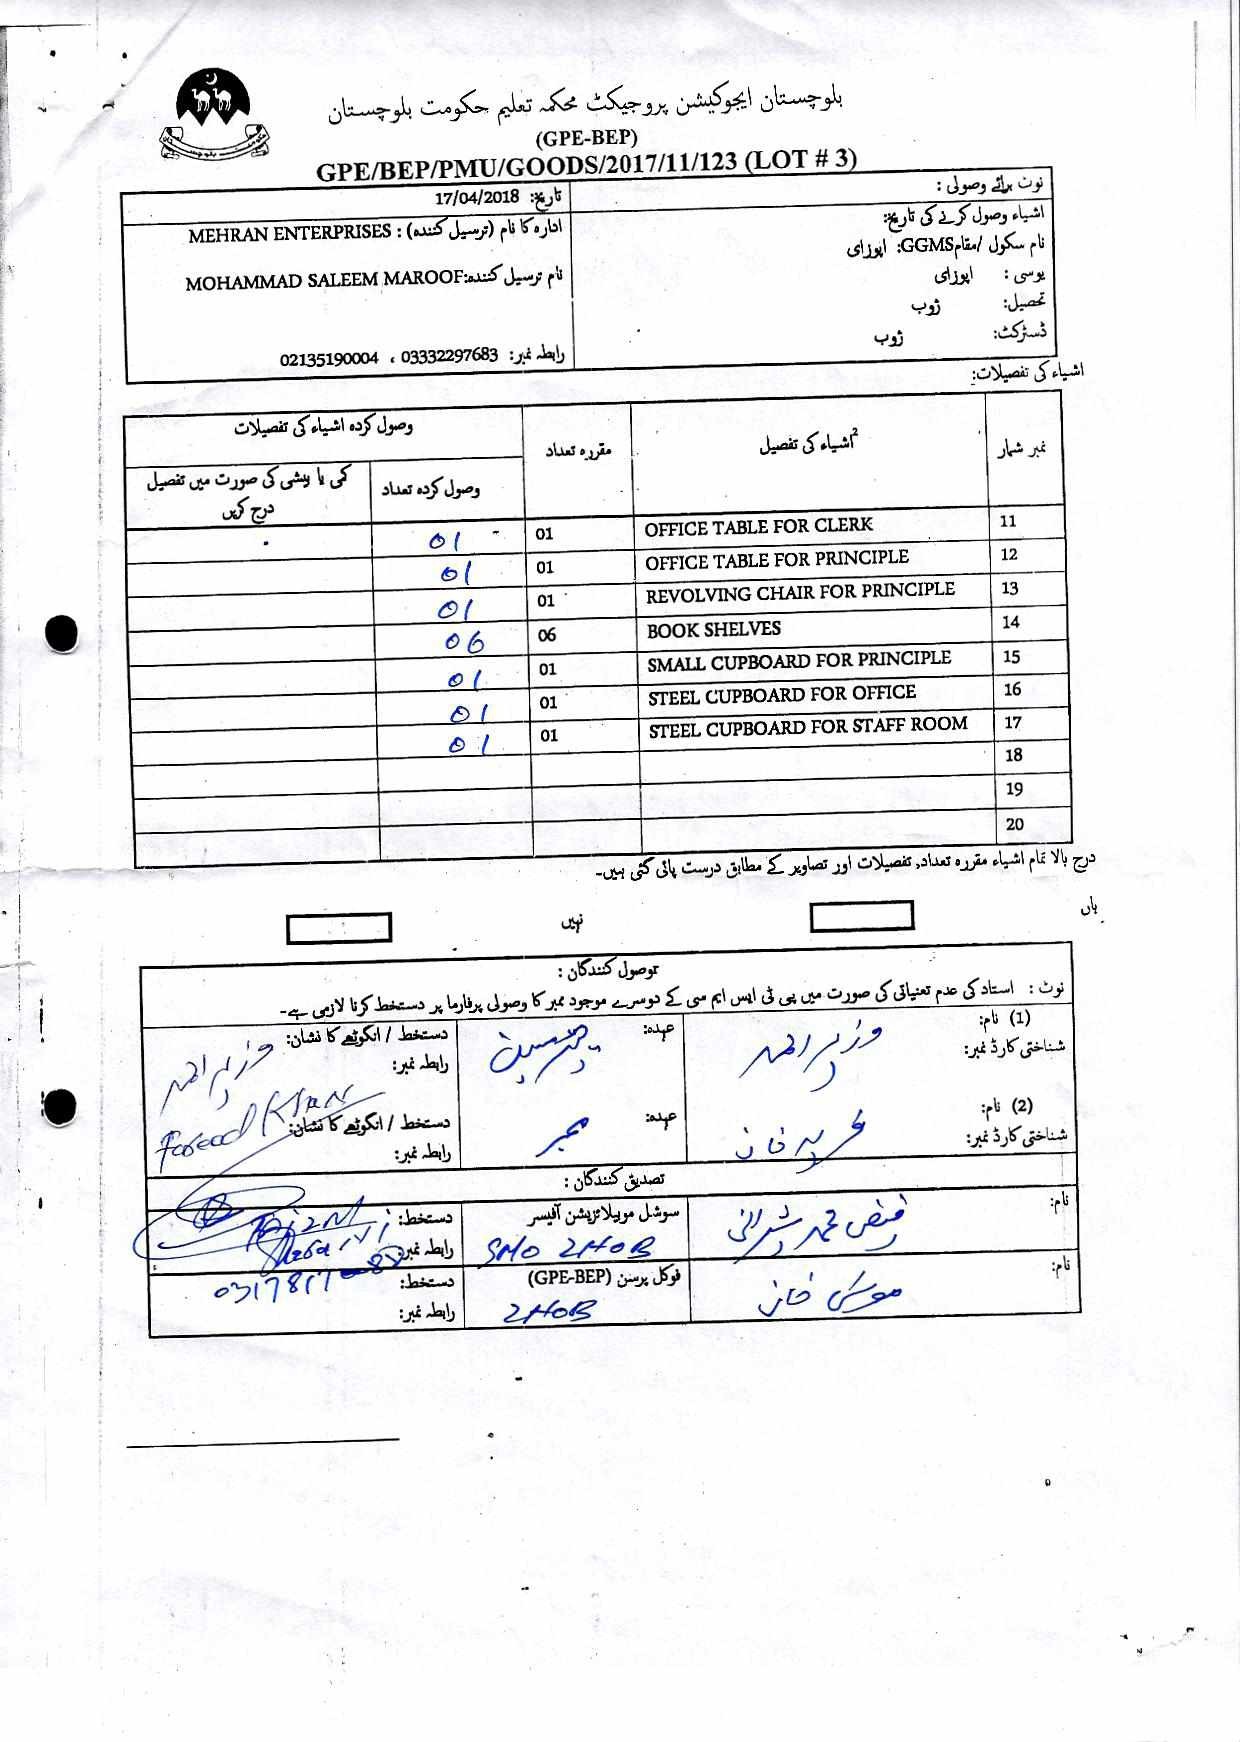 بلوچستان ایجوکیشن پروجیکٹ محکمہ تعلیم حکومت بلوچستان
(GPE-BEP)
GPE/BEP/PMU/GOODS/2017/11/123 (LOT # 3)
نوٹ برائے وصولی :
اشیاء وصول کرنے کی تاریخ:
نام سکول /مقامGGMS: اپوزای
یوسی : اپوزای
تحصیل: ژوب
ڈسٹرکٹ: ژوب
تاریخ: 17/04/2018
ادارہ کا نام (ترسیل کنندہ) : MEHRAN ENTERPRISES
نام ترسیل کنندہ:MOHAMMAD SALEEM MAROOF
رابطہ نمبر: 03332297683 ، 02135190004
اشیاء کی تفصیلات:
نمبر شمار اشیاء کی تفصیل2 مقررہ تعداد وصول کردہ اشیاء کی تفصیلات
وصول کردہ تعداد کمی یا بیشی کی صورت میں تفصیل درج کریں
11 OFFICE TABLE FOR CLERK 01 01
12 OFFICE TABLE FOR PRINCIPLE 01 01
13 REVOLVING CHAIR FOR PRINCIPLE 01 01
14 BOOK SHELVES 06 06
15 SMALL CUPBOARD FOR PRINCIPLE 01 01
16 STEEL CUPBOARD FOR OFFICE 01 01
17 STEEL CUPBOARD FOR STAFF ROOM 01 01
18
19
20
درج بالا تمام اشیاء مقررہ تعداد, تفصیلات اور تصاویر کے مطابق درست پائی گئی ہیں۔
ہاں نہیں
توصول کنندگان :
نوٹ : استاد کی عدم تعنیاتی کی صورت میں پی ٹی ایس ایم سی کے دوسرے موجود ممبر کا وصولی پرفارما پر دستخط کرنا لازمی ہے۔
(1) نام: وزیر احمد عہدہ: چیئرمین دستخط / انگوٹھے کا نشان: وزیر احمد
شناختی کارڈ نمبر: رابطہ نمبر:
(2) نام: فرید خان عہدہ: ممبر دستخط / انگوٹھے کا نشان: Khan
شناختی کارڈ نمبر: رابطہ نمبر:
تصدیق کنندگان :
نام: فیض محمد شیرانی سوشل موبیلائزیشن آفیسر دستخط:
SMO ZHOB رابطہ نمبر:
نام: موسیٰ خان فوکل پرسن (GPE-BEP) دستخط:
ZHOB رابطہ نمبر: